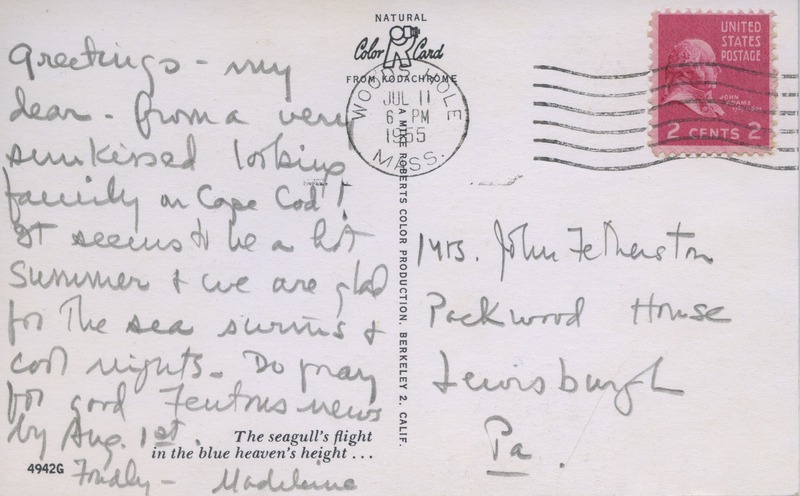 Greetings - my
dear - from a very
sunkissed looking
family on Cape Cod!
It seems to be a hot
Summer & we are glad
for the sea swims &
cool nights. Do pray
for good Fentons news
by Aug. 1st.
Fondly - Madeleine
The seagull's flight
in the blue heaven's height . . .
4942G
NATURAL
Color Card
FROM KODACHROME
A MIKE ROBERTS COLOR PRODUCTION. BERKELEY 2, CALIF.
WOODS HOLE
JUL 11
6 PM
1955
MASS.
UNITED
STATES
POSTAGE
JOHN
ADAMS
2 CENTS 2
Mrs. John Fetherston
Packwood House
Lewisburgh
Pa.